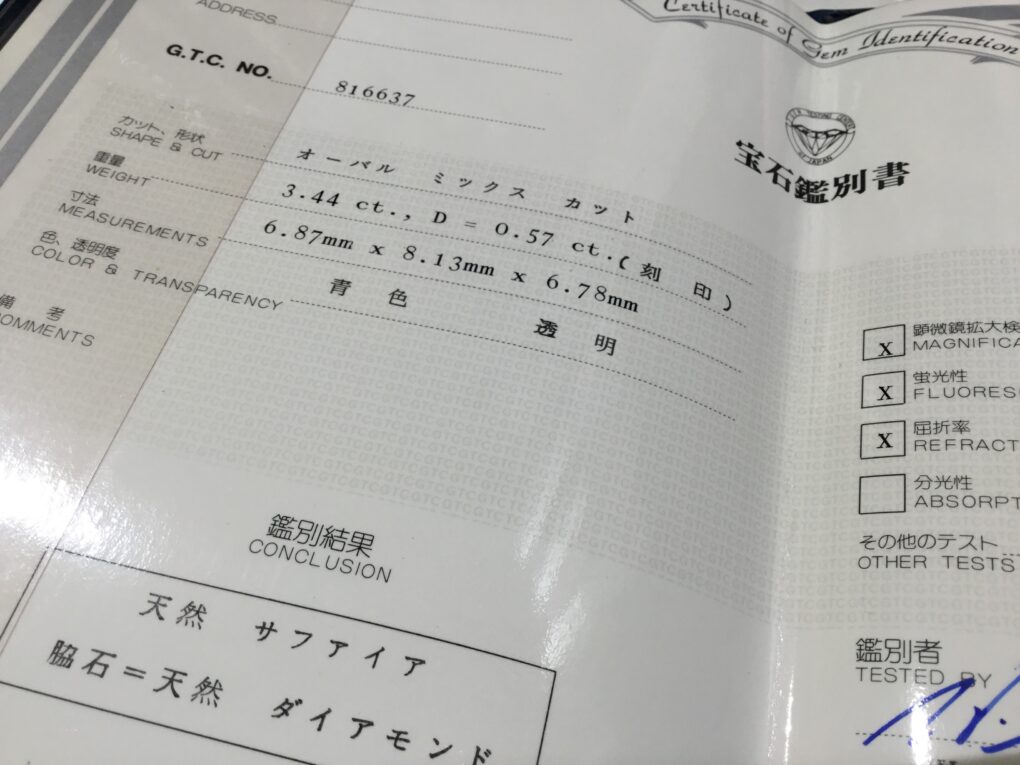 ADDRESS
G.T.C. NO.
816637
カット、形状
SHAPE & CUT
オーバル ミックス カット
重量
WEIGHT
3.44 ct., D = 0.57 ct.(刻 印)
寸法
MEASUREMENTS
6.87mm x 8.13mm x 6.78mm
色、透明度
COLOR & TRANSPARENCY
青 色 透 明
備 考
COMMENTS
鑑別結果
CONCLUSION
天然 サファイア
脇石=天然 ダイアモンド
Certificate of Gem Identification
宝石鑑別書
x 顕微鏡拡大検
MAGNIFICA
x 蛍光性
FLUORES
x 屈折率
REFRACT
分光性
ABSORPT
その他のテスト
OTHER TESTS
鑑別者
TESTED BY